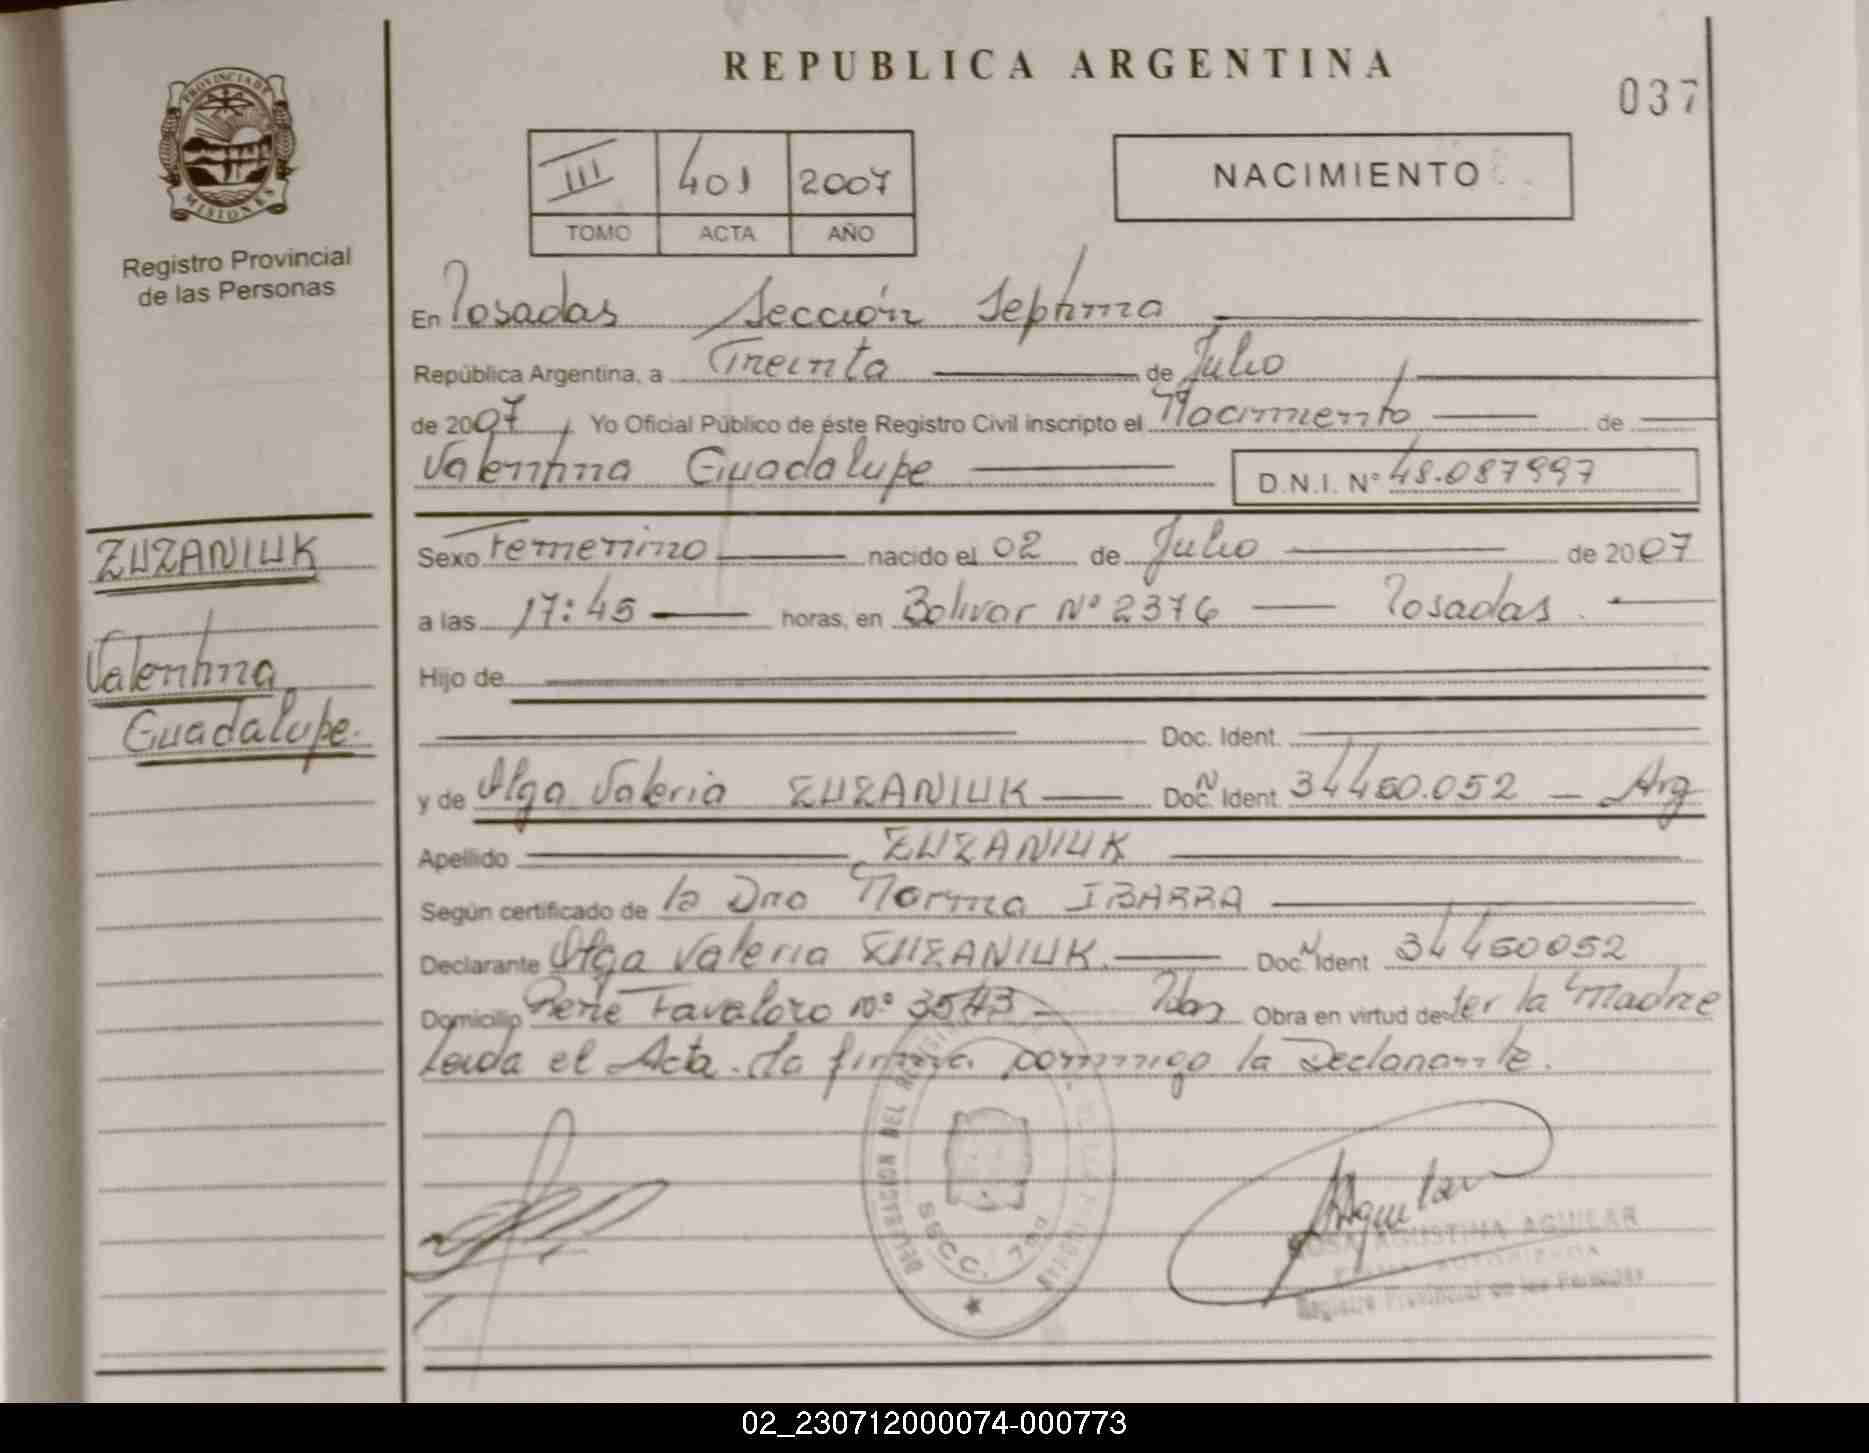 REPUBLICA ARGENTINA
037
PROVINCIA DE
MISIONES
Registro Provincial
de las Personas
III 401 2007
TOMO ACTA AÑO
NACIMIENTO
En Posadas Sección Septima
República Argentina, a Treinta de Julio
de 2007, Yo Oficial Público de éste Registro Civil inscripto el Nacimiento de
Valentina Guadalupe D.N.I. Nº 48.087997
ZUZANIUK
Valentina
Guadalupe.
Sexo Femenino nacido el 02 de Julio de 2007
a las 17:45 horas, en Bolivar Nº 2376 Posadas.
Hijo de
Doc. Ident.
y de Olga Valeria ZUZANIUK Doc. N Ident 34460.052 - Arg
Apellido ZUZANIUK
Según certificado de la Dra Norma IBARRA
Declarante Olga Valeria ZUZANIUK. Doc. N Ident 34460052
Domicilio Rene Favaloro nº 3543 - Pdas Obra en virtud de Ser la Madre
Leida el Acta. la firma conmigo la Declarante.
DELEGACION DEL
SSCC.
Aguilar
ROSA AGUSTINA AGUILAR
FIRMA AUTORIZADA
Registro Provincial de las Personas
02_230712000074-000773